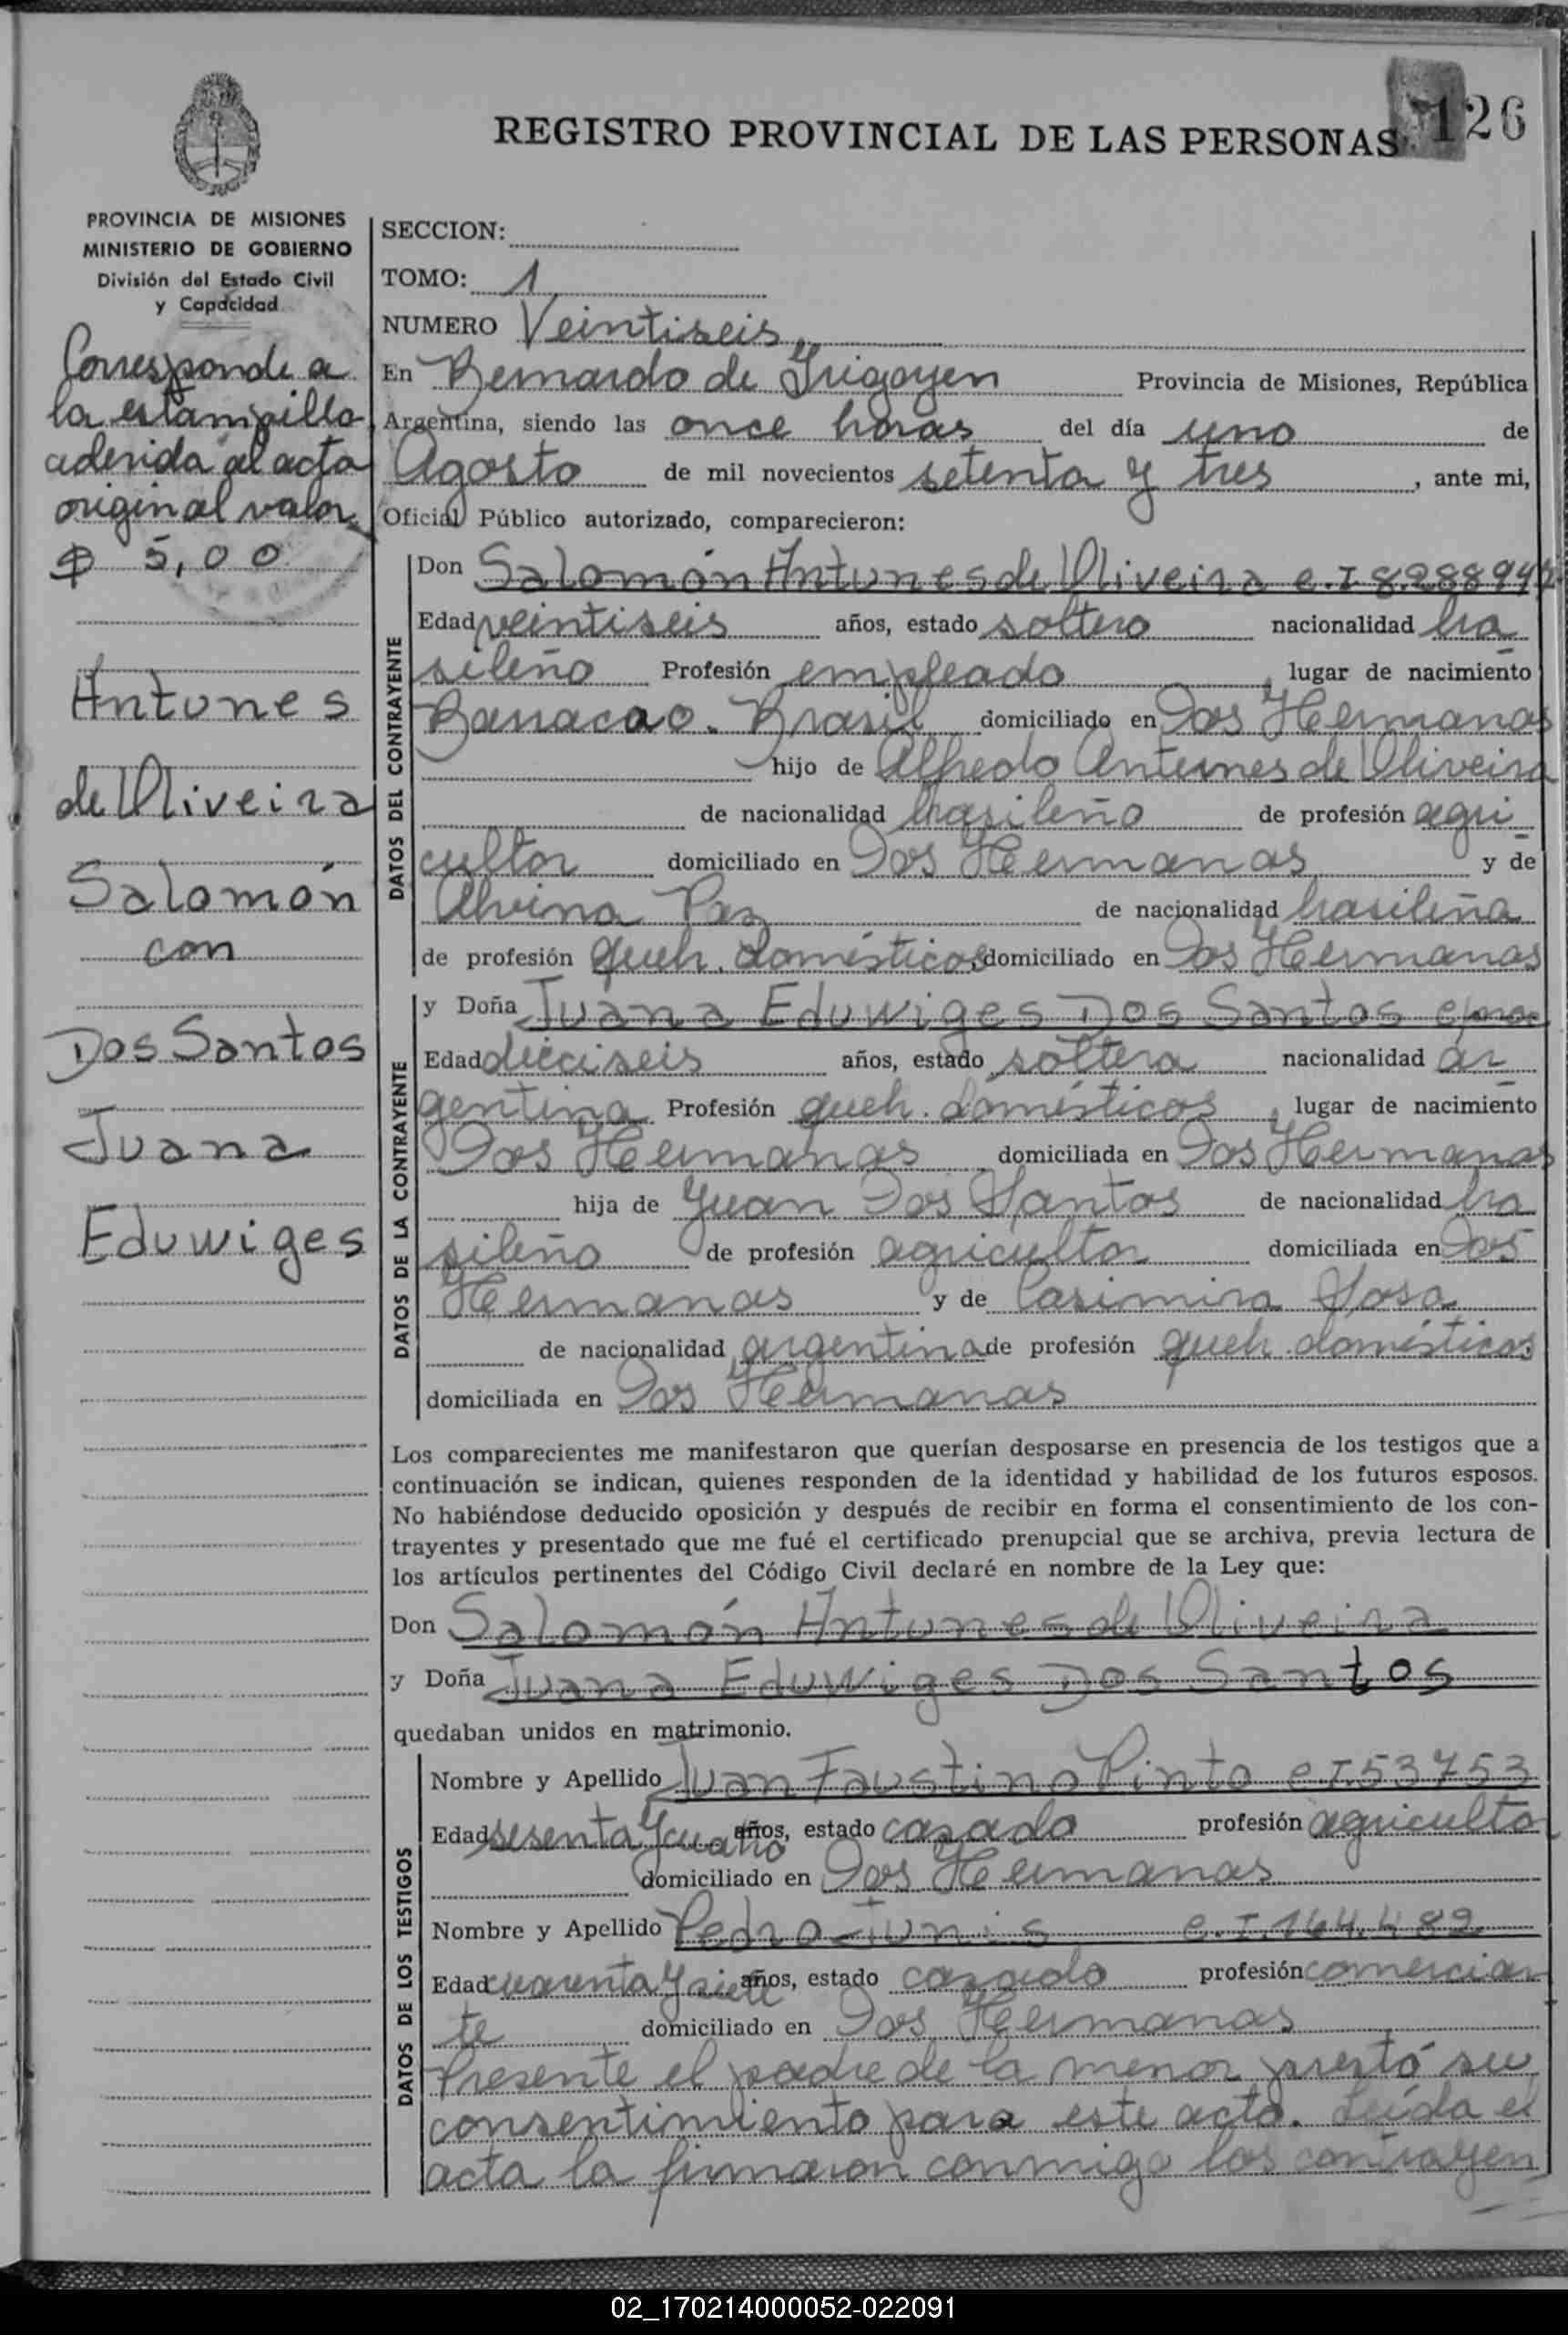 126
REGISTRO PROVINCIAL DE LAS PERSONAS
PROVINCIA DE MISIONES
MINISTERIO DE GOBIERNO
División del Estado Civil
y Capacidad
Corresponde a
la estampilla
aderida al acta
original valor
$ 5,00
Antunes
de Oliveira
Salomón
con
Dos Santos
Juana
Eduwiges
SECCION:
TOMO: 1
NUMERO Veintiseis
En Bernardo de Irigoyen Provincia de Misiones, República
Argentina, siendo las once horas del día uno de
Agosto de mil novecientos setenta y tres, ante mi,
Oficial Público autorizado, comparecieron:
DATOS DEL CONTRAYENTE
Don Salomón Antunes de Oliveira c.I
Edad veintiseis años, estado soltero nacionalidad bra
sileño Profesión empleado, lugar de nacimiento
Barracao. Brasil domiciliado en Dos Hermanas
hijo de Alfredo Antunes de Oliveira
de nacionalidad brasileño de profesión agri
cultor domiciliado en Dos Hermanas y de
Alvina Paz de nacionalidad brasileña
de profesión queh. domésticos, domiciliado en Dos Hermanas
DATOS DE LA CONTRAYENTE
y Doña Juana Eduwiges Dos Santos
Edad dieciseis años, estado soltera nacionalidad ar
gentina Profesión queh. domésticos, lugar de nacimiento
Dos Hermanas domiciliada en Dos Hermanas
hija de Juan Dos Santos de nacionalidad bra
sileño de profesión agricultor domiciliada en Dos
Hermanas y de Casimira Sosa
de nacionalidad argentina de profesión queh. domésticos
domiciliada en Dos Hermanas
Los comparecientes me manifestaron que querían desposarse en presencia de los testigos que a
continuación se indican, quienes responden de la identidad y habilidad de los futuros esposos.
No habiéndose deducido oposición y después de recibir en forma el consentimiento de los con-
trayentes y presentado que me fué el certificado prenupcial que se archiva, previa lectura de
los artículos pertinentes del Código Civil declaré en nombre de la Ley que:
Don Salomón Antunes de Oliveira
y Doña Juana Eduwiges Dos Santos
quedaban unidos en matrimonio.
DATOS DE LOS TESTIGOS
Nombre y Apellido Juan Faustino Pinto c.I 53753
Edad sesenta y cuatro años, estado casado profesión agricultor
domiciliado en Dos Hermanas
Nombre y Apellido Pedro Junis c.I. 164.482
Edad cuarenta y siete años, estado casado profesión comercian
te domiciliado en Dos Hermanas
Presente el padre de la menor prestó su
consentimiento para este acto. Leída el
acta la firmaron conmigo los contrayen
02_170214000052-022091